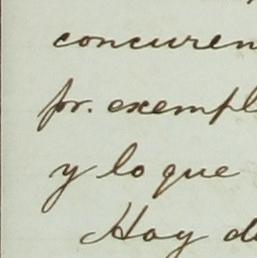 concuren
pr. exempl
y lo que
Hay d